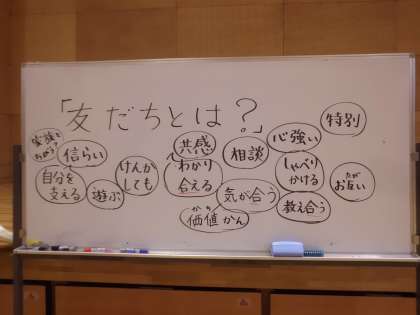 「友だちとは？」
家族と
ちがう？
信らい
自分を
支える
遊ぶ
けんか
しても
共感
わかり
合える
価値かん
かち
相談
気が合う
心強い
しゃべり
かける
教え合う
特別
お互い
たが